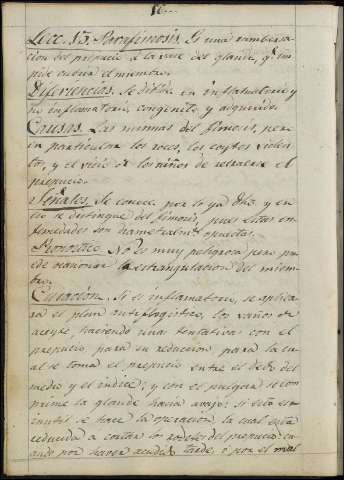 Lecc. 15. Parafimosis. Es una tumbersa-
cion del prepucio á la base del glande, q.e im-
pide cubrir el miembro.
Diferiencias. Se divide en inflamatorio y
no inflamatorio, congenito y adquirido.
Causas. Las mismas del fimosis, pero
in particular los roces, los coytos violen-
tos, y el vicio de los niños de retraerse el
prepucio.
Señales. Se conoce por lo ya dho. y en
se distingue del fimosis, pues estas en-
fermedades son diametralm.te opuestas.
Pronostico. No es muy peligrosa pero pu-
ede ocasionar la extrangulacion del miem-
bro.
Curacion. Si es inflamatorio, se aplica-
rá el plan antiflogistico, los vaños de
aceyte, haciendo una tentativa con el
prepucio, para su reducion, para la cu-
al se toma el prepucio entre el dedo del
medio y el indice; y con el pulgar se com-
prime la glande hacia avajo: si esto es
inutil se hace la operacion, la cual está
reducida a cortar los rodetes del prepucio cu-
ando por haver acudido tarde, ó por el mal